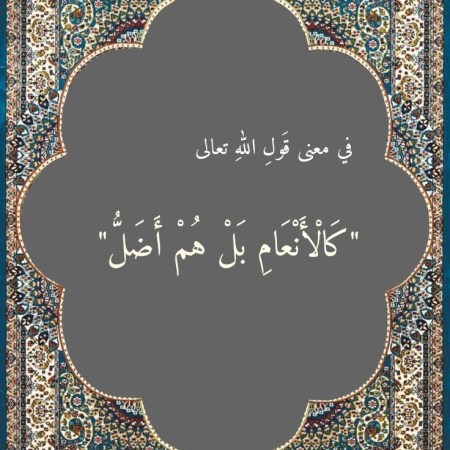 في معنى قَولِ اللهِ تعالى
"كَالْأَنْعَامِ بَلْ هُمْ أَضَلُّ"